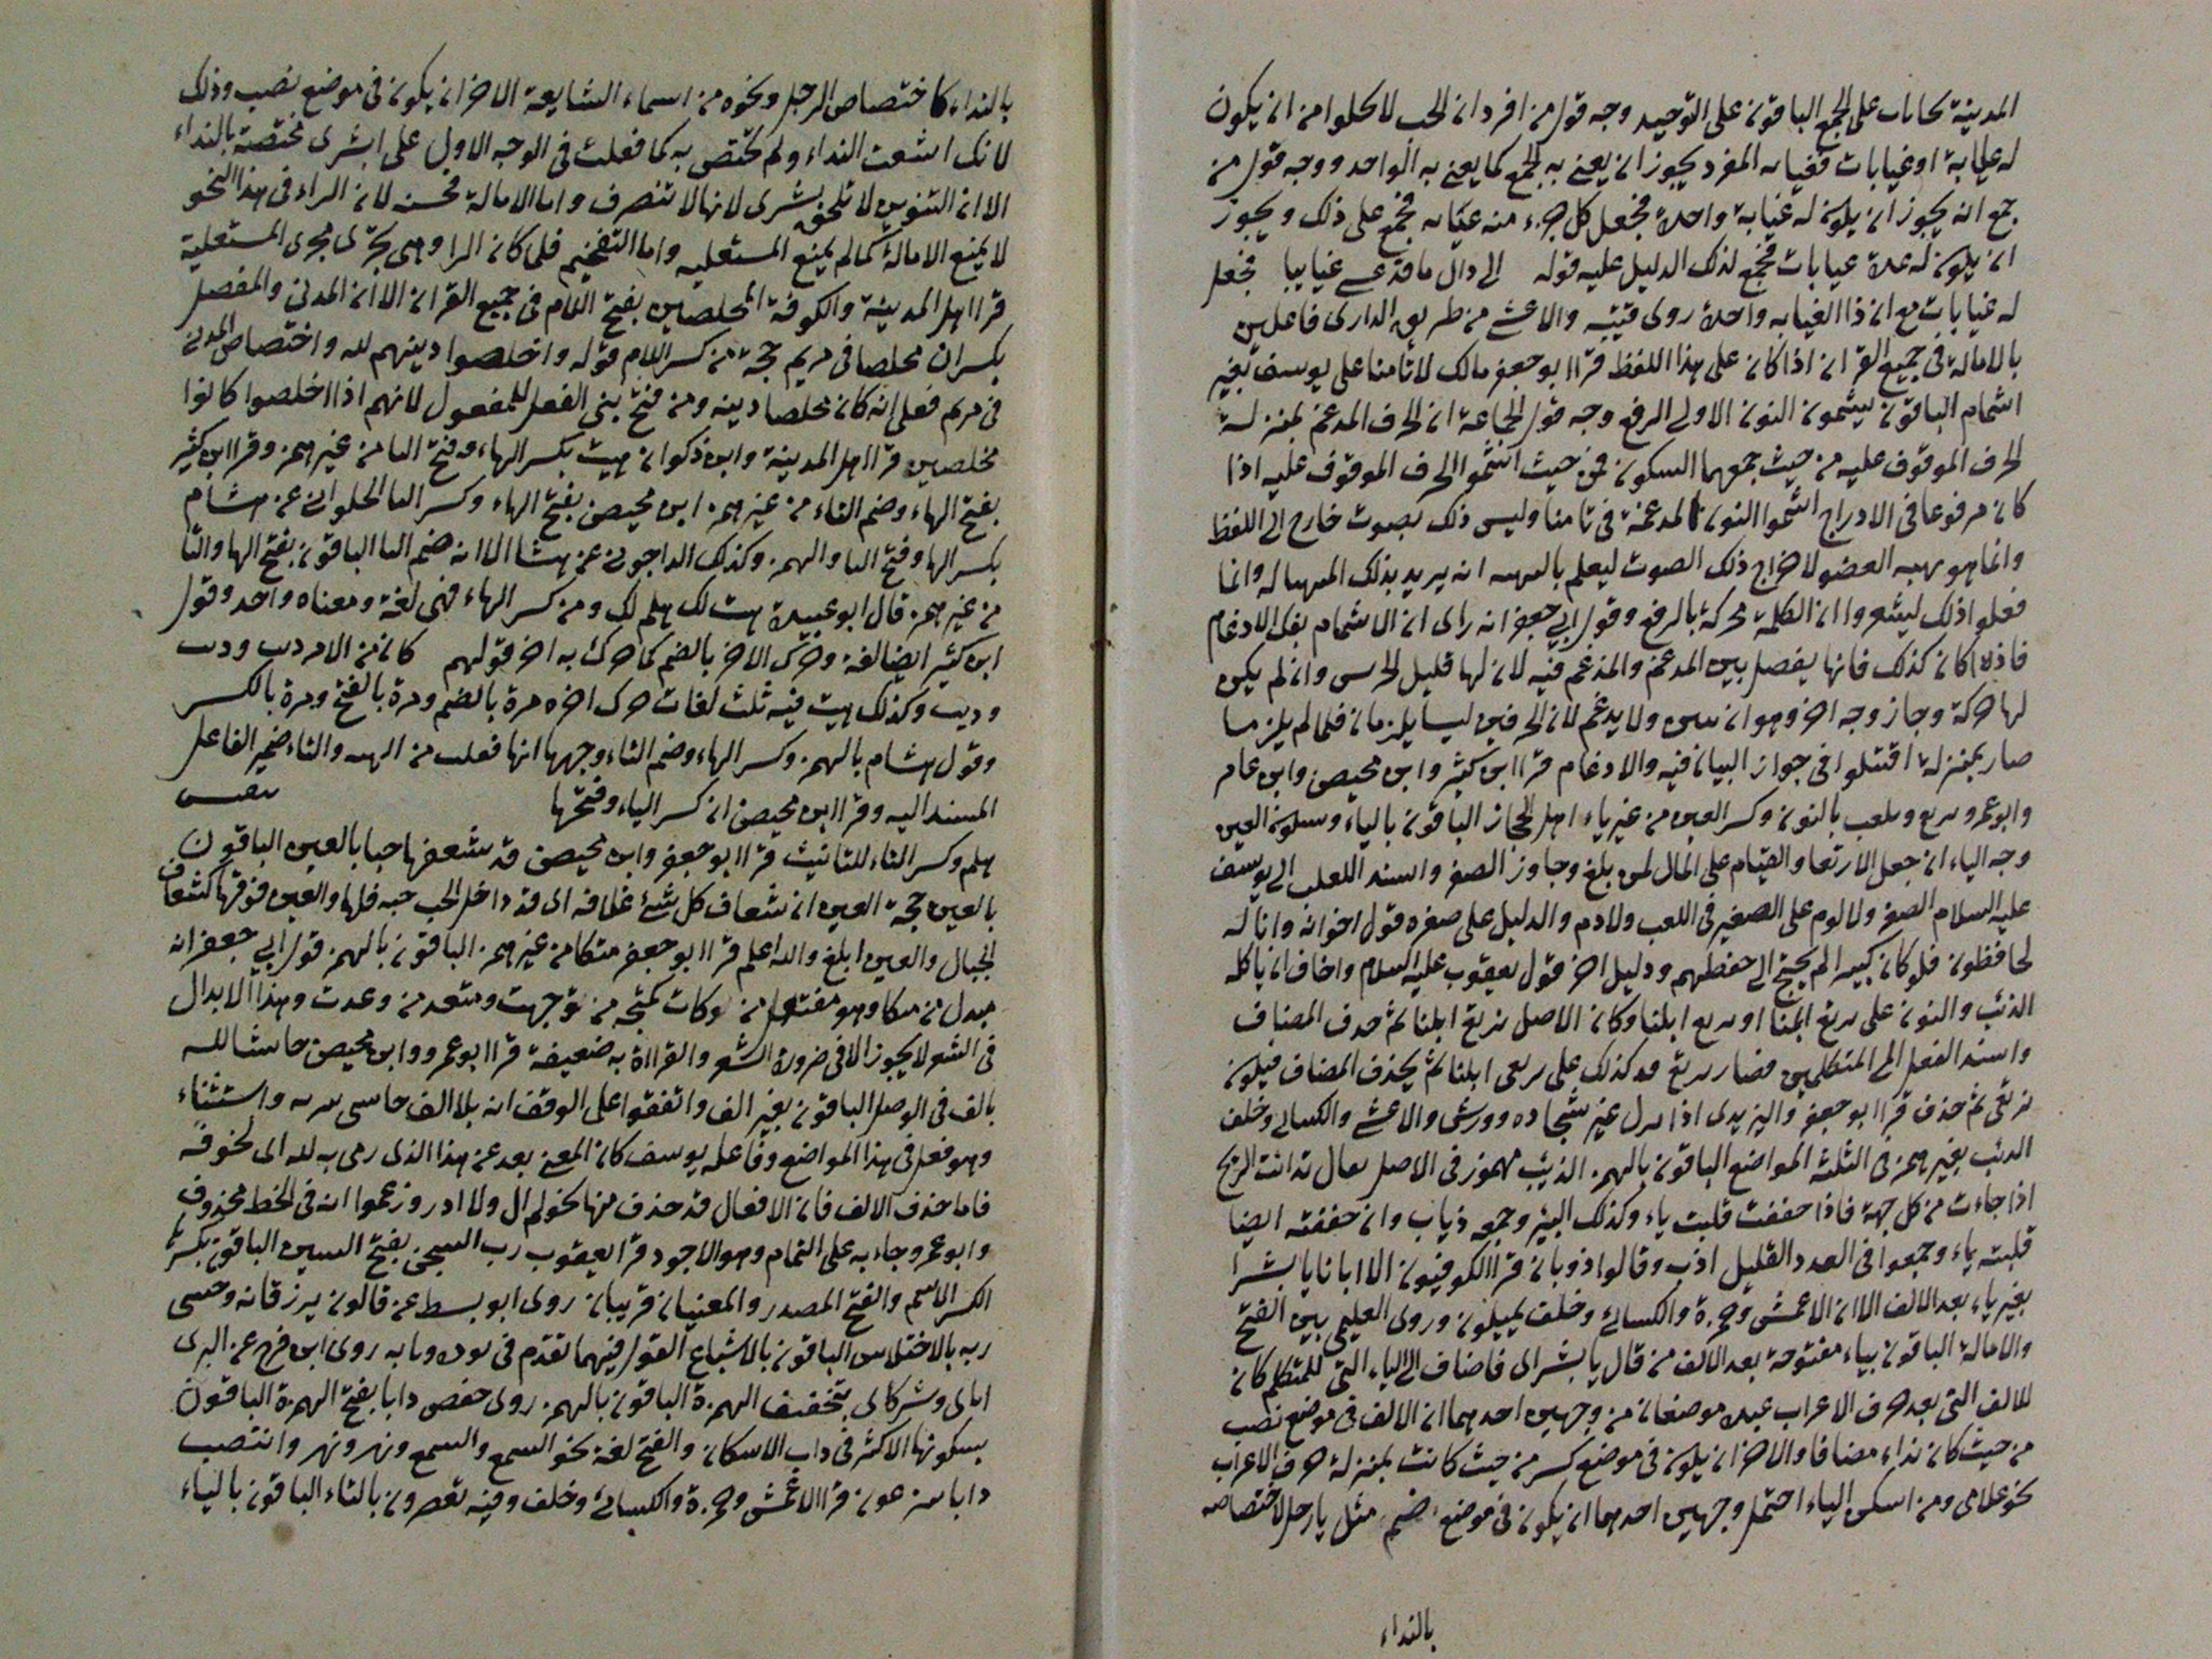 المدينة غيابات على الجمع الباقون على التوحيد وجه قول من افرد ان الجب لا يخلوا من ان يكون
له غيابة او غيابات فغيابه المفرد يجوز ان يعنى به الجمع كما يعنى به الواحد ووجه قول من
جمع انه يجوز ان يكون له غيابة واحدة فجعل كل جزء منه غيابه فجمع على ذلك ويجوز
ان يكون له عدة غيابات فجمع لذلك الدليل عليه قوله الى ذاك ما قد غيابيا فجعل
له غيابات مع ان ذا الغيابه واحدة روى قتيبه والاعشى من طريق الدارى فاعلين
بالامالة فى جميع القران اذا كان على هذا اللفظ قرا ابو جعفر مالك لا تامنا على يوسف بغير
اشمام الباقون يشمون النون الاولى الرفع وجه قول الجماعة ان الحرف المدغم بمنزلة
الحرف الموقوف عليه من حيث جمعهما السكون فمن حيث اشموا الحرف الموقوف عليه اذا
كان مرفوعا فى الادراج اشموا النون المدغمة فى تامنا وليس ذلك بصوت خارج الى اللفظ
وانما هو تهيه العضو لاخراج ذلك الصوت ليعلم انه يريد بذلك وانما
فعلوا ذلك ليشعروا ان الكلمة محركة بالرفع وقول ابى جعفر انه راى ان الاشمام يفك الادغام
فاذا كان كذلك فانها يفصل بين المدغم والمدغم فيه لان لها قليل الحرس وان لم يكن
لها حركة وجاز وجه اخر وهو ان يبين ولا يدغم لان الحرفين ليسا يلزمان فلما لم يلزما
صار بمنزلة اقتتلوا فى جواز البيان فيه والادغام قرا ابن كثير وابن محيصن وابن عامر
وابو عمرو نرتع ونلعب بالنون وكسر العين من غير ياء اهل الحجاز الباقون بالياء وسكون العين
وجه الياء ان جعل الارتعا والقيام على المال لمن بلغ وجاوز الصغر واسند اللعب الى يوسف
عليه السلام الصغر ولا لوم على الصغير فى اللعب ولا ذم والدليل على صغره قول اخوانه وانا له
لحافظون فلو كان كبيرا لم يحتج الى حفظهم ودليل اخر قول يعقوب عليه السلام واخاف ان ياكله
الذئب والنون على نرتع ابلنا او نرتع ابلنا وكان الاصل نرتع ابلنا ثم حذف المضاف
واسند الفعل الى المتكلمين فصار نرتع وكذلك على نرتعى ابلنا ثم يحذف المضاف فيكون
نرتعى ثم حذف قرا ابو جعفر واليزيدى اذا غير شجاده وورش والاعشى والكسائى وخلف
الذئب بغير همز فى الثلثة المواضع الباقون بالهمز الذئب مهموز فى الاصل يقال تذائبت الريح
اذا جاءت من كل جهة فاذا خففت قلبت ياء وكذلك البئر وجمعه ذياب وان خففته ايضا
قلبته ياء وجمعوا فى العدد القليل اذب وقالوا ذوبان قرا الكوفيون الا ابانا يا بشرا
بغير ياء بعد الالف الا ان الاعمش وحمزة والكسائى وخلف يميلون وروى العليمى بين الفتح
والامالة الباقون بياء مفتوحة بعد الالف من قال يا بشراى فاضاف الى الياء التى للمتكلم كان
للالف التى بعد حرف الاعراب عنده موضعان من وجهين احدهما ان الالف فى موضع نصب
من حيث كان نداء مضافا والاخر ان يكون فى موضع كسر من حيث كانت بمنزلة حرف الاعراب
نحو غلامى ومن اسكن الياء احتمل وجهين احدهما ان يكون فى موضع ضم مثل يا رجل لاختصاصه
بالنداء
بالنداء كاختصاص الرجل ونحوه من اسماء الشايعة الاخر ان يكون فى موضع نصب وذلك
لانك اشعت النداء ولم تختص به كما فعلت فى الوجه الاول على ابشرى مختصة بالنداء
الا ان التنوين لا تلحق بشرى لانها لا تنصرف واما الامالة فحسنه لان الراء فى هذا النحو
لا يمنع الامالة كما لم يمنع المستعليه واما التفخيم فلما كان الرا وهى بحرى مجرى المستعلية
قرا اهل المدينة والكوفة المخلصين بفتح اللام فى جميع القران الا ان المدنى والمفضل
يكسران مخلصا فى مريم حجة من كسر اللام قوله واخلصوا دينهم لله واختصاص المدنى
فى مريم فعلى انه كان مخلصا دينه ومن فتح بنى الفعل للمفعول لانهم اذا اخلصوا كانوا
مخلصين قرا اهل المدينة وابن ذكوان هيت بكسر الهاء وفتح التا من غير همز وقرا ابن كثير
بفتح الهاء وضم التاء من غير همز ابن محيصن بفتح الهاء وكسر التا الحلوانى عن هشام
بكسر الها وفتح التا والهمز وكذلك الداجونى عن هشام الا انه ضم التا الباقون بفتح الها والتا
من غير همز قال ابو عبيدة هيت لك هلم لك ومن كسر الهاء فهى لغة ومعناه واحد وقول
ابن كثير ايضا لغة وحرك الاخر بالضم كما حرك به اخر قولهم كان من الامر ديت وديت
وديت وكذلك هيت فيه ثلث لغات حرك اخره مرة بالضم ومرة بالفتح ومرة بالكسر
وقول هشام بالهمز وكسر الهاء وضم التاء وجهها انها فعلت من الهيه والتاء ضمير الفاعل
المسند اليه وقرا ابن محيصن ان كسر الياء وفتحها
هلم وكسر التاء للتانيث قرا ابو جعفر وابن محيصن قد شعفها حبا بالعين الباقون
بالغين حجة الغين ان شغاف كل شئ غلافه اى قد داخل الحب حبه قلبها والعين فوقها كشعاف
الجبال والغين ابلغ والله اعلم قرا ابو جعفر متكا من غير همز الباقون بالهمز قول ابى جعفر انه
مبدل من متكا وهو مفتعل من توكات كمتجه من توجهت ومتعد من وعدت وهذا الابدال
فى الشعر لا يجوز الا فى ضرورة الشعر والقراءة به ضعيفة قرا ابو عمرو وابن محيصن حاشا لله
بالف فى الوصل الباقون بغير الف واتفقوا على الوقف انه بلا الف حاشى واستثناء
وهو فعل فى هذا المواضع وفاعله يوسف كان المعنى بعد عن هذا الذى رمى به لله اى لخوفه
فاما حذف الالف فان الافعال قد حذف منها نحو لم ال ولا ادر وزعموا انه فى الخط محذوف
وابو عمرو جاء به على التمام وهو الاجود قرا يعقوب رب السجن بفتح السين الباقون بكسرها
الكسر الاسم والفتح المصدر والمعنيان قريبان روى ابو بسط عن قالون يرزقانه وحسى
ربه بالاختلاس الباقون بالاشباع القول فيهما تقدم فى يوده ومابه روى ابن فرح عن البزى
اباى وشركاى بتخفيف الهمزة الباقون بالهمز روى حفص دابا بفتح الهمزة الباقون
بسكونها الاكثر فى داب الاسكان والفتح لغة نحو السمع والسمع ونهر ونهر وانتصب
دابا تزرعون قرا الاعمش وحمزة والكسائى وخلف وفيه تعصرون بالتاء الباقون بالياء